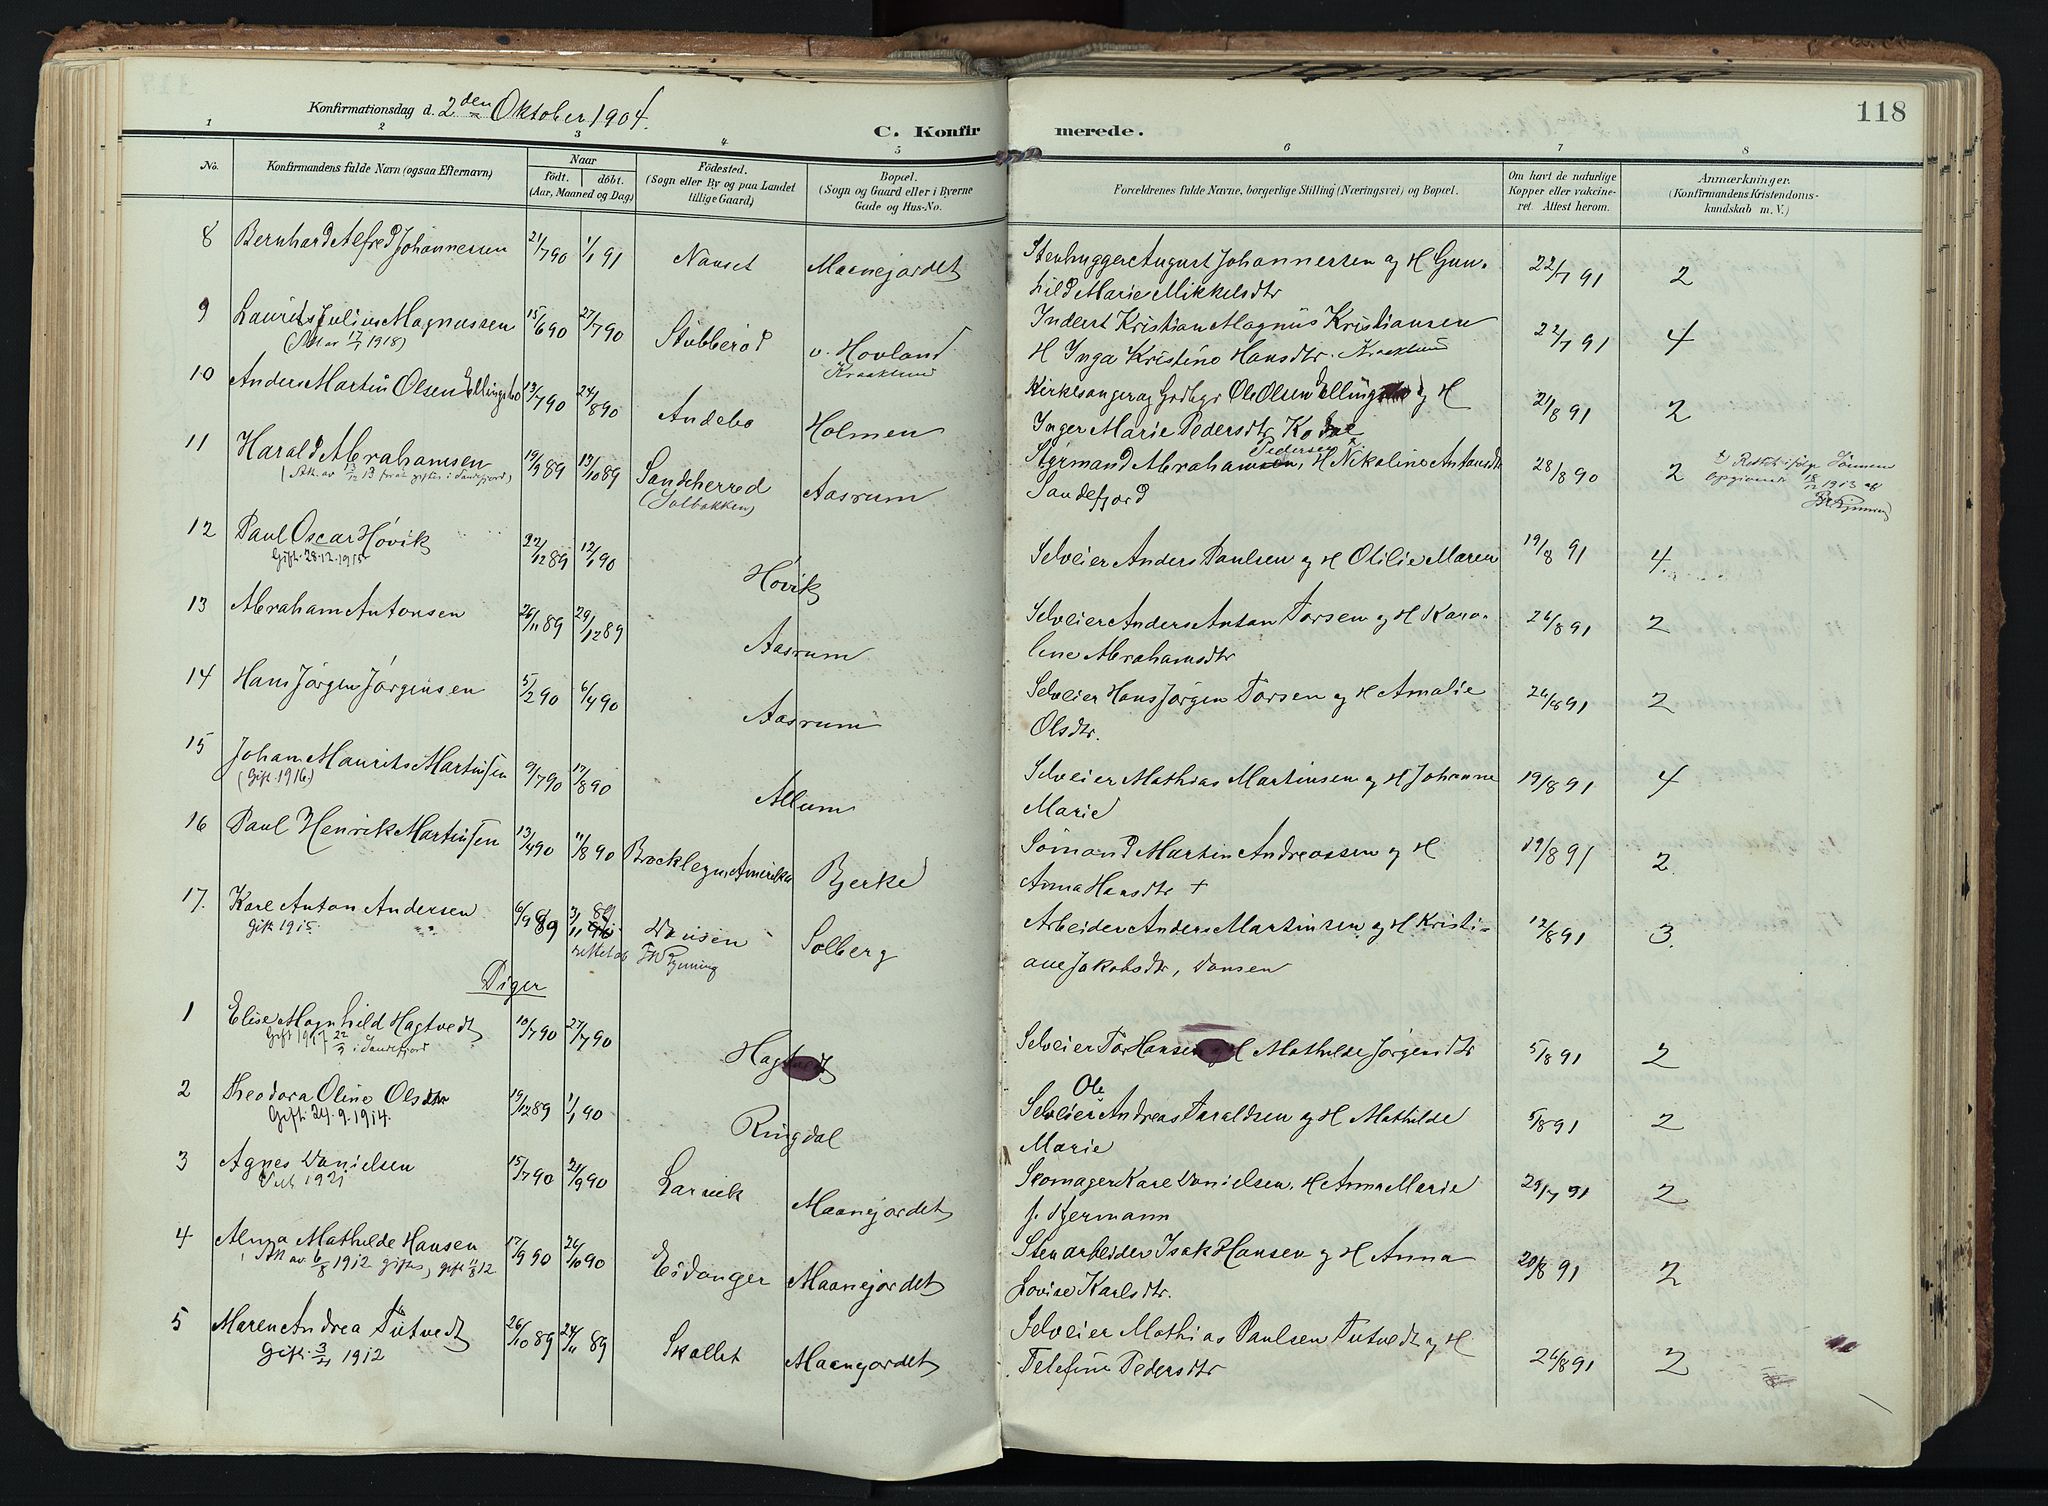 118
Konfirmationsdag d. 2den Oktober 1904.
C. Konfir merede.
1 2 3 4 5 6 7 8
No. Konfirmandens fulde Navn (ogsaa Efternavn) Naar födt. döbt. (Aar, Maaned og Dag) Födested. (Sogn eller By og paa Landet tillige Gaard) Bopæl. (Sogn og Gaard eller i Byerne Gade og Hus-No. Forældrenes fulde Navne, borgerlige Stilling (Næringsvei) og Bopæl. Om havt de naturlige Kopper eller vaccineret. Attest herom. Anmærkninger. (Konfirmandens Kristendomskundskab m. V.)
8 Bernhard Alfred Johannessen 21/7 90 1/1 91 Nanset Maanejordet Stenhugger August Johannessen og H Gunhild Marie Mikkelsdtr 22/7 91 2
9 Laurits Julius Magnussen 15/6 90 27/7 90 Stubberød v. Hovland Inderst Kristian Magnus Kristiansen H Inga Kristine Hansdtr. 22/7 91 4
10 Anders Martin Olsen Ellingsbo 13/7 90 24/8 90 Andebo Holmen Kirkesanger og Grdbgr Ole Olsen og H Inger Marie Pedersdtr. Kodal 21/8 91 2
11 Harald Abrahamsen 19/9 89 13/10 89 Sandeherred (Solbakken) Aasrum Styrmand Abrahamsen Pedersen, H Nikoline Antonsdtr Sandefjord 28/8 90 2
12 Paul Oscar Høvik 22/12 89 12/1 90 Høvik Selveier Anders Paulsen og H Otilie Maren 19/8 91 4.
Gift 28.12.1915
13 Abraham Antonsen 26/11 89 29/12 89 Aasrum Selveier Anders Anton Torsen og H Karoline Abrahamsdtr 26/8 91 2
14 Hans Jørgen Jørgensen 5/2 90 6/4 90 Aasrum Selveier Hans Jørgen Torsen og H Amalie Olsdtr. 26/8 91 2
15 Johan Maurits Martinsen 9/7 90 17/8 90 Allum Selveier Mathias Martinsen og H Johanne Marie 19/8 91 4
(Gift 1916)
16 Paul Henrik Martinsen 13/4 90 11/8 90 Brocklyn, Amerika Bjerke Sømand Martin Andreassen og H Anna Hansdtr + 19/8 91 2
17. Karl Anton Andersen 6/9 89 3/11 89 Solberg Arbeider Anders Martinsen og H Kristiane Jakobsdtr, 12/8 91 3.
Gift 1915
Piger
1 Elise Magnhild Hagtvedt 10/7 90 27/7 90 Hagtvedt Selveier Tor Hansen og H Mathilde Jørgensdtr 5/8 91 2
2 Theodora Oline Olsdtr 19/12 89 1/1 90 Ringdal Selveier Ole Andreas Taraldsen og H Mathilde Marie 5/8 91 2
Gift 24.9.1914.
3 Agnes Danielsen 15/7 90 21/9 90 Larvik Maanejordet Skomager Karl Danielsen, H Anna Marie 29/7 91 2
4 Alma Mathilde Hansen 17/9 90 26/10 90 Eidanger Maanejordet Stenarbeider Isak Hansen og H Anna Lovise Karlsdtr. 20/8 91 2
5 Maren Andrea Tutvedt 26/10 89 24/11 89 Skallet Maanejordet Selveier Mathias Paulsen Tutvedt og H Telefine Pedersdtr 26/8 91 2